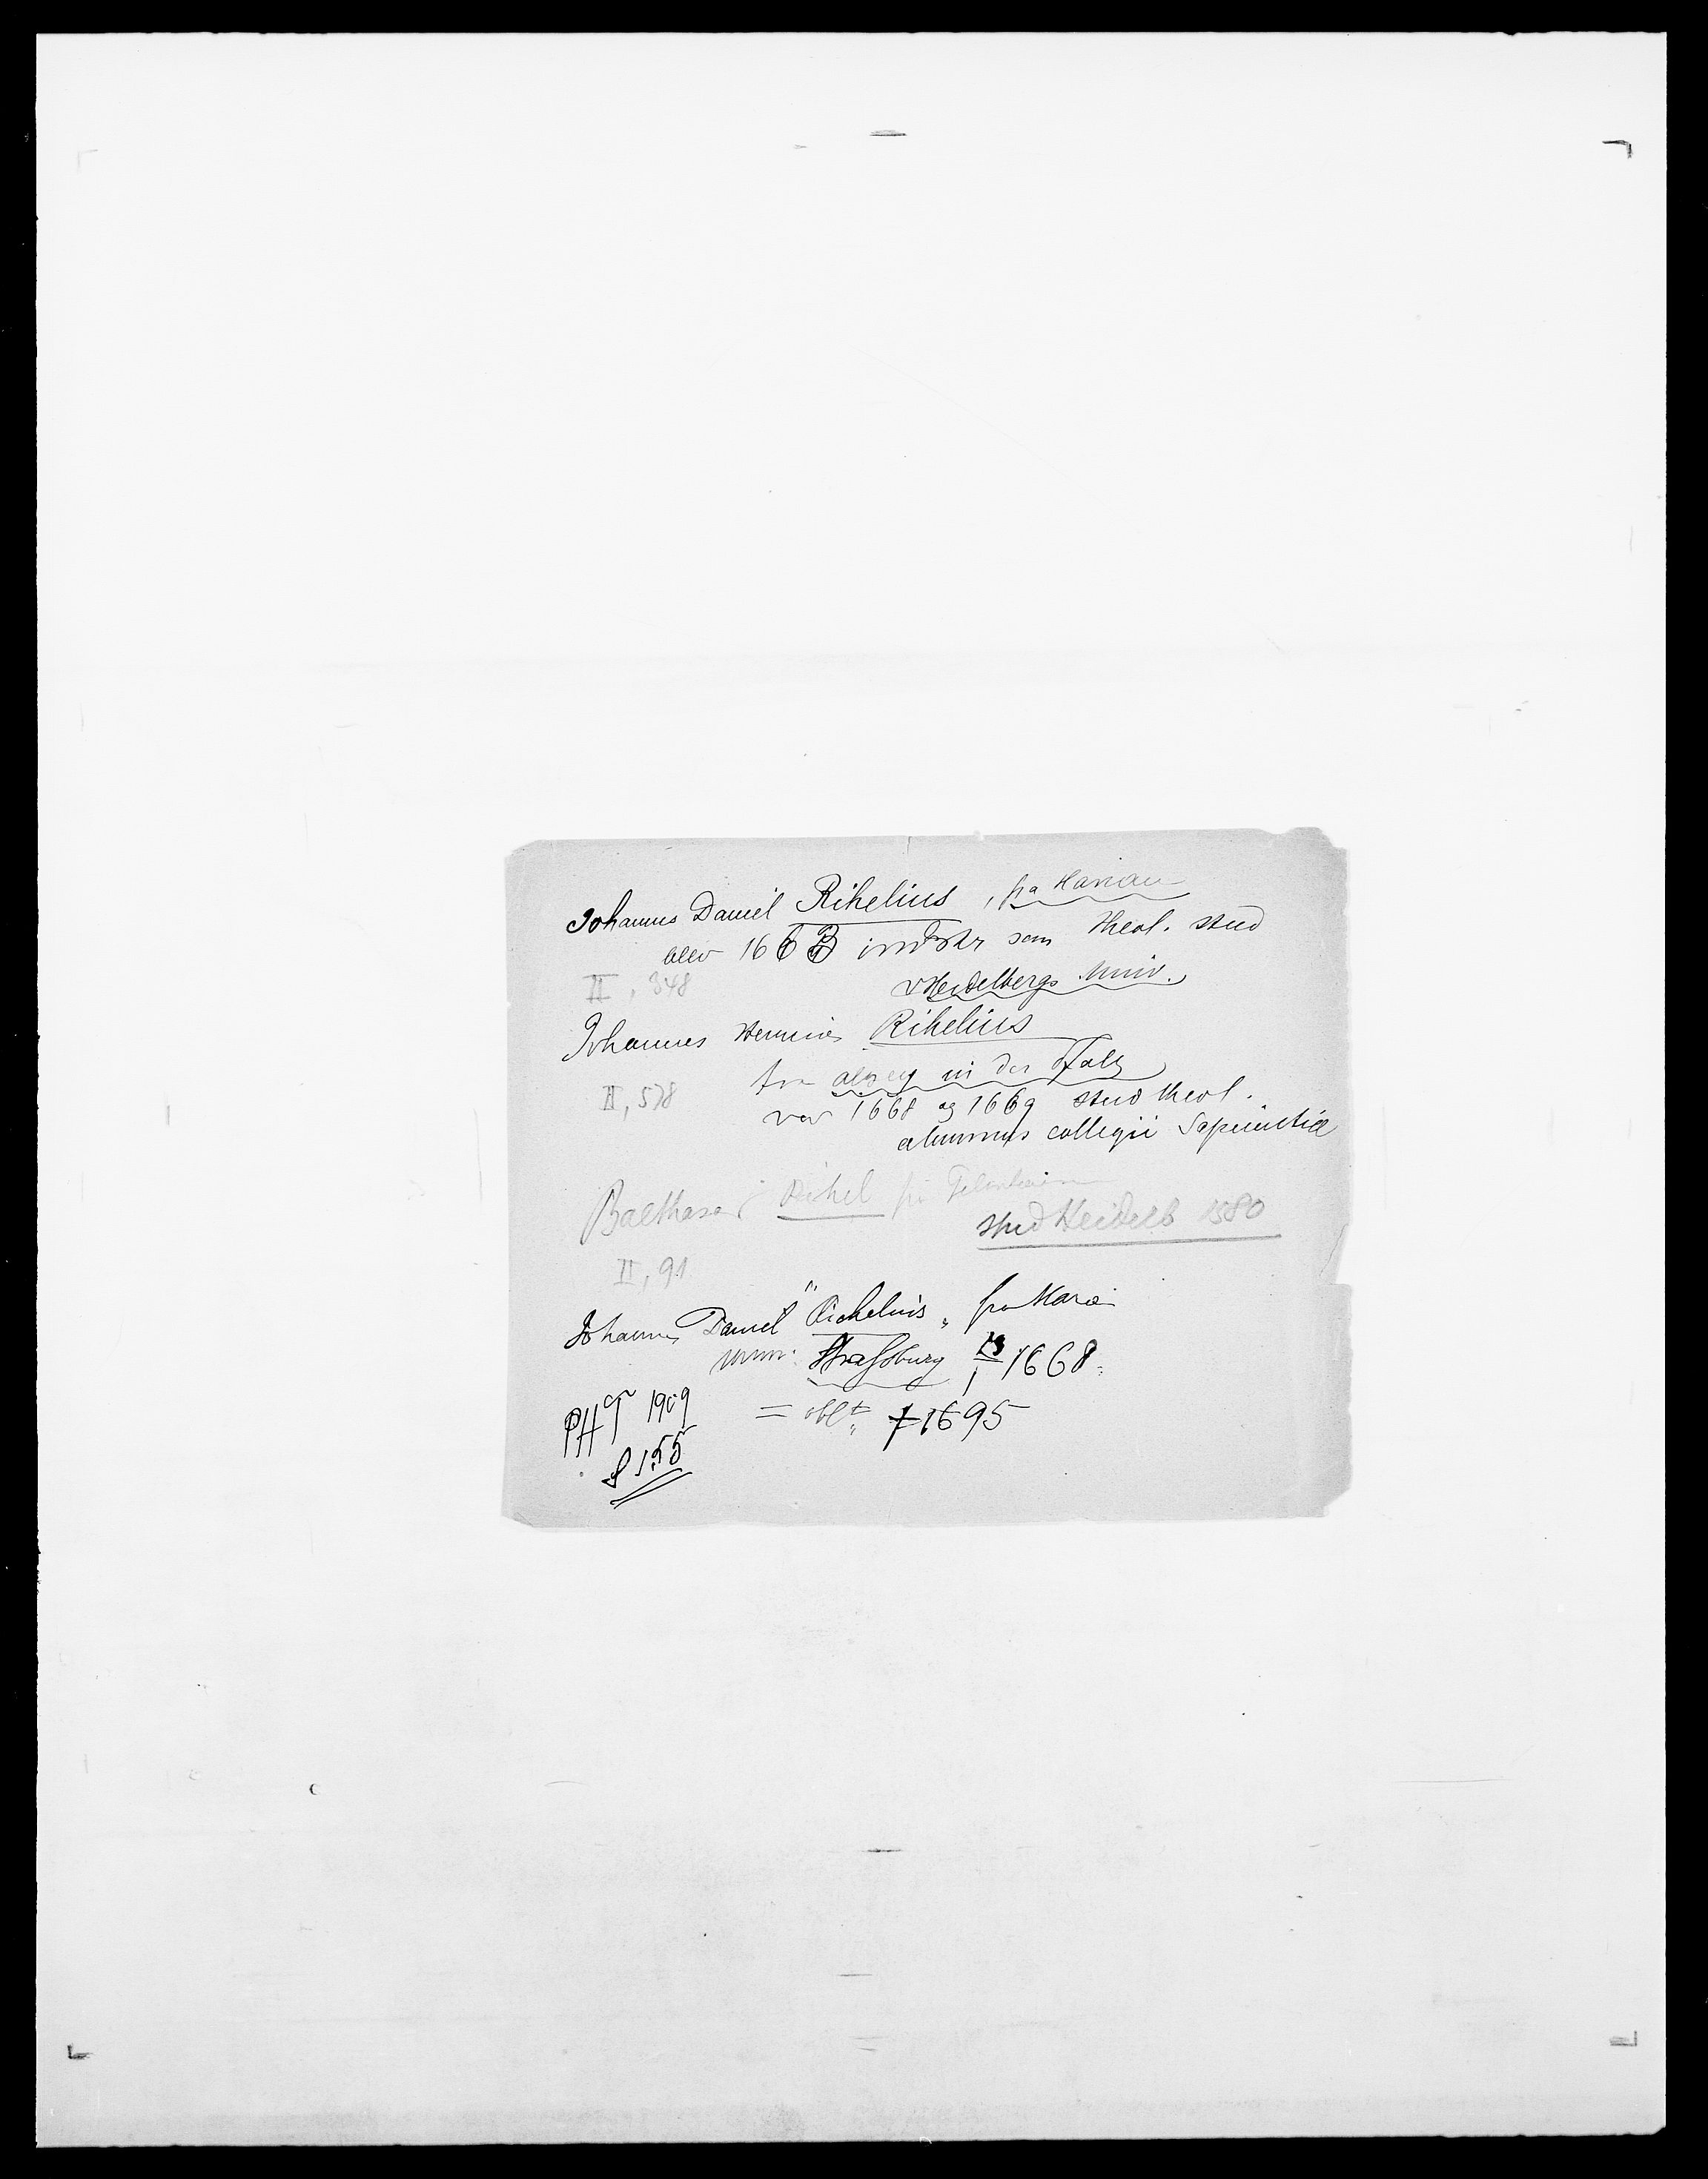 Johannes Daniel Rihelius, fra Hanau
blev 1663 indskr som theol. stud
II, 348 v Heidelbergs Univ.
Johannes Rihelius
fra Alzey in der Pfalz
II, 578 var 1668 og 1669 stud theol.
alumnus collegii Sapientiæ
Balthasar Rihel fra
stud Heidelb 1580
II, 91
Johannes Daniel "Richelius" fra
Straßburg 1668
PHT 1909 = † 1695
S 155